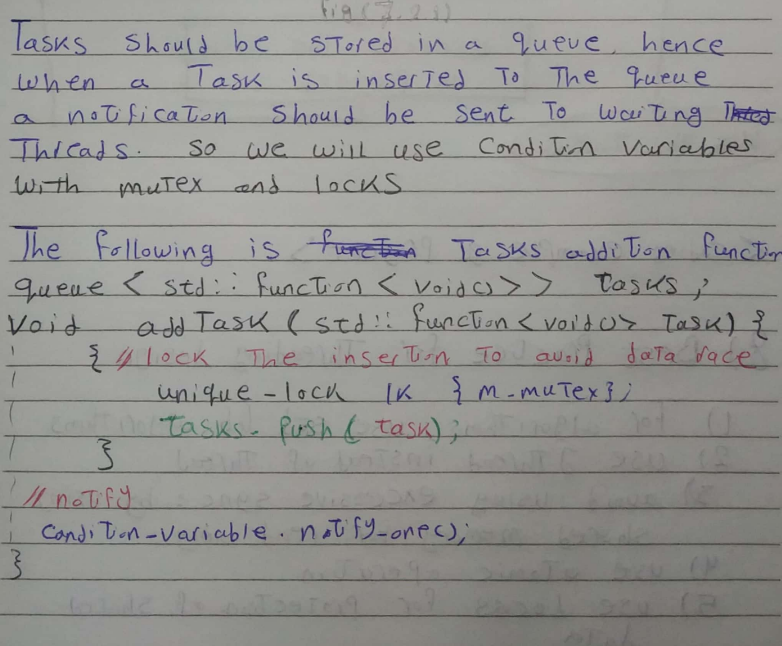 Fig(7.2.3)
Tasks should be stored in a queue, hence
when a Task is inserted To The queue
a notification should be sent To waiting
Threads. so we will use Condition variables
with mutex and locks
The following is Tasks addition function
queue < std:: function < void()>> tasks ;
void addTask ( std:: function<void()> Task) {
{ // lock The insertion To avoid data race
unique-lock lk { m-mutex};
tasks. push ( task);
}
// notify
Condition-variable . notify-one();
}